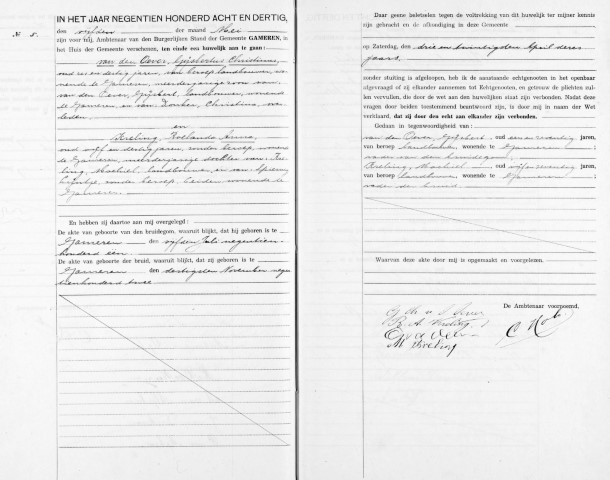 IN HET JAAR NEGENTIEN HONDERD ACHT EN DERTIG,
den vijfden der maand Mei
№ 5.
zijn voor mij, Ambtenaar van den Burgerlijken Stand der Gemeente GAMEREN, in
het Huis der Gemeente verschenen, ten einde een huwelijk aan te gaan:
van den Oever, Gijsbertus Christinus,
oud zes en dertig jaren, van beroep landbouwer, wo-
nende te Gameren, meerderjarige zoon van:
van den Oever, Gijsbert, landbouwer, wonende
te Gameren en van Donker, Christina, over-
leden.
en
Kreling, Roelanda Anna,
oud vijf en dertig jaren, zonder beroep, wonende
te Gameren, meerderjarige dochter van: Kre-
ling, Machiel, landbouwer en van
zonder beroep, beiden wonende te
Gameren.
En hebben zij daartoe aan mij overgelegd:
De akte van geboorte van den bruidegom, waaruit blijkt, dat hij geboren is te
Gameren den vijfden Juli negentien-
honderd een.
De akte van geboorte der bruid, waaruit blijkt, dat zij geboren is te
Gameren den dertigsten November nege
tienhonderd twee
Daar geene beletselen tegen de voltrekking van dit huwelijk ter mijner kennis
zijn gebracht en de afkondiging in deze Gemeente
op Zaterdag, den drie en twintigsten April dezes
jaars,
zonder stuiting is afgeloopen, heb ik de aanstaande echtgenooten in het openbaar
afgevraagd of zij elkander aannemen tot Echtgenooten en getrouw de plichten zul-
len vervullen, die door de wet aan den huwelijken staat zijn verbonden. Nadat deze
vragen door beiden toestemmend beantwoord zijn, is door mij in naam der Wet
verklaard, dat zij door den echt aan elkander zijn verbonden.
Gedaan in tegenwoordigheid van:
van den Oever, Gijsbert, oud een en zeventig jaren,
van beroep landbouwer, wonende te Gameren;
vader van den bruidegom.
Kreling, Machiel, oud vijf en zeventig jaren,
van beroep landbouwer, wonende te Gameren;
vader der bruid.
Waarvan deze akte door mij is opgemaakt en voorgelezen.
De Ambtenaar voornoemd,
R. A. Kreling
M Kreling